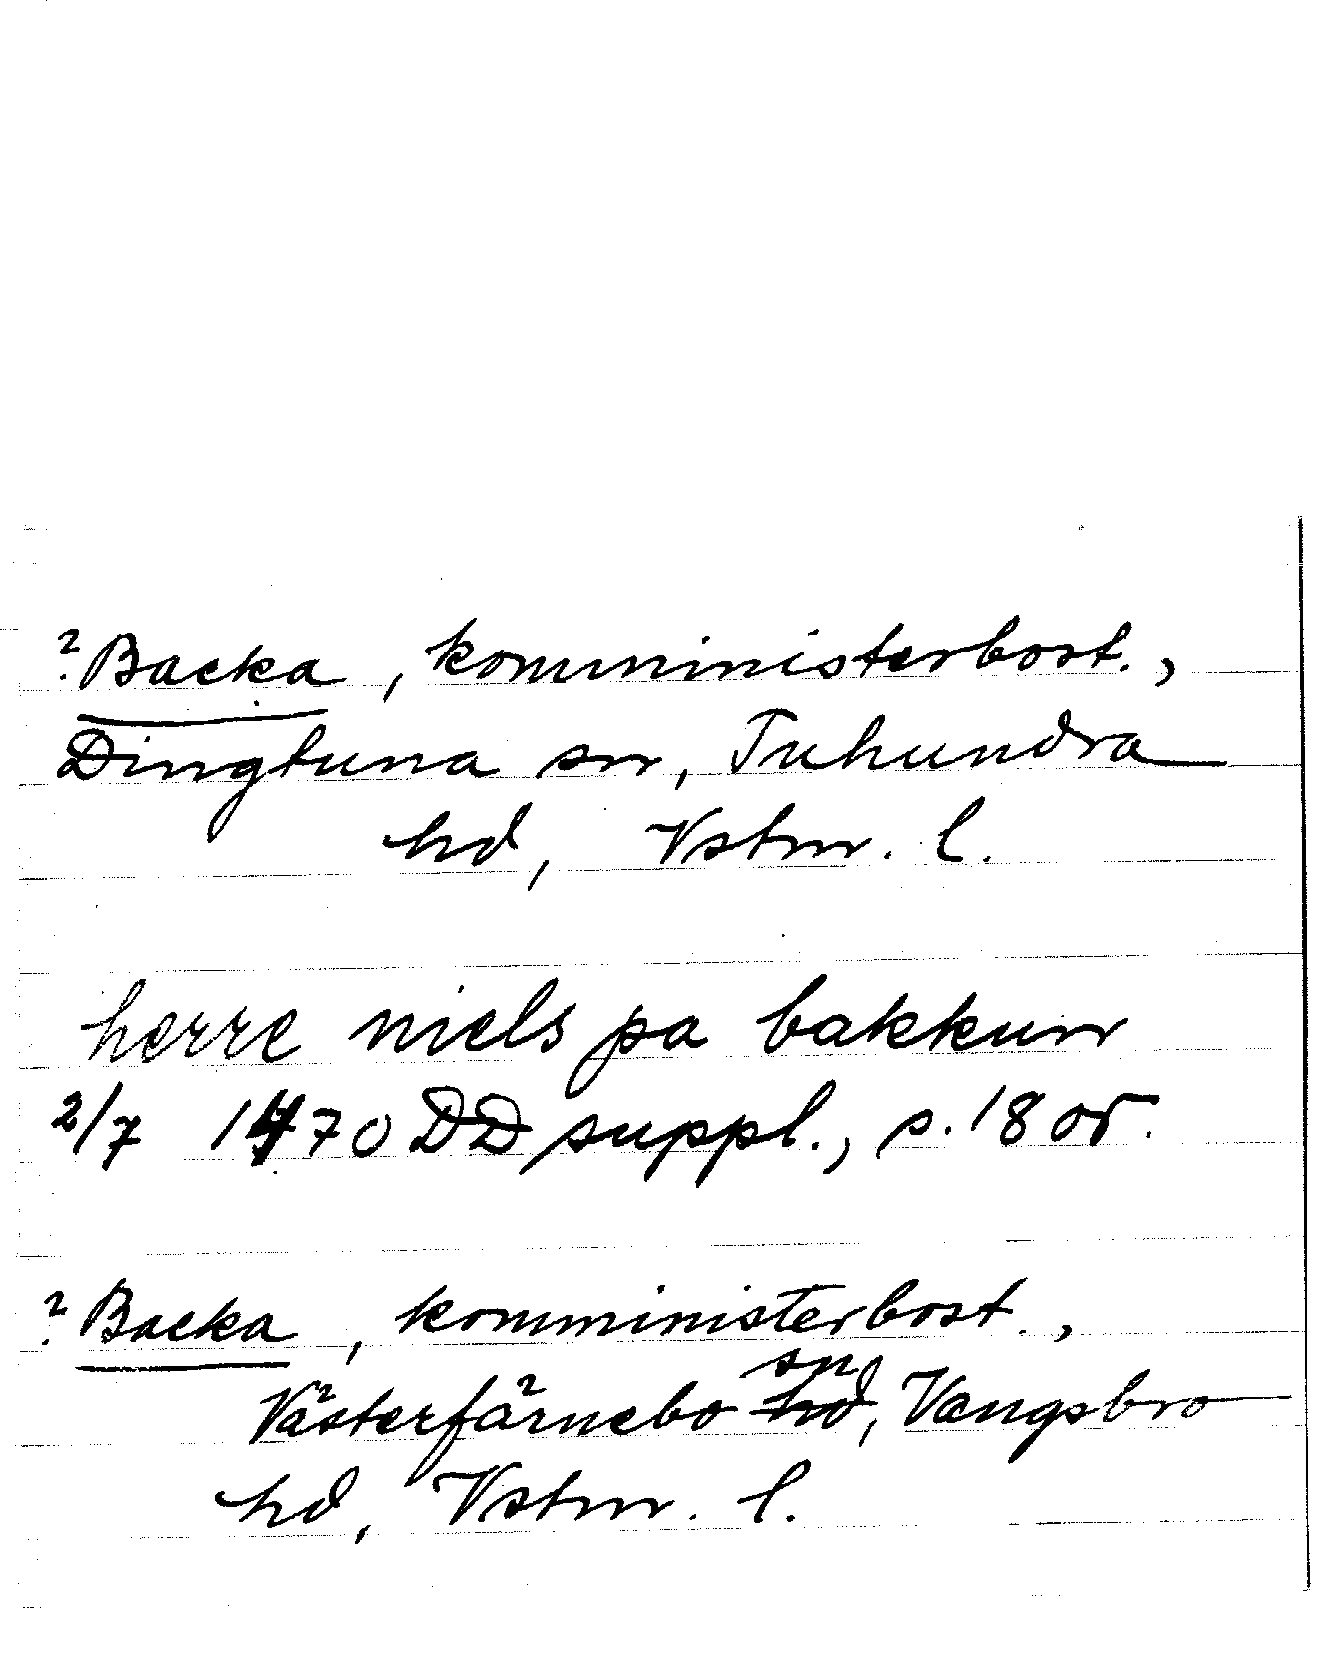 ? Backa, komministerbost.,
Dingtuna sn, Tuhundra
hd, Vstm. l.
herre niels pa bakkum
2/7 1470 DD suppl., s. 180 r.
? Backa, komministerbost.,
sn
Västerfärnebo hd, Vangsbro
hd, Vstm. l.